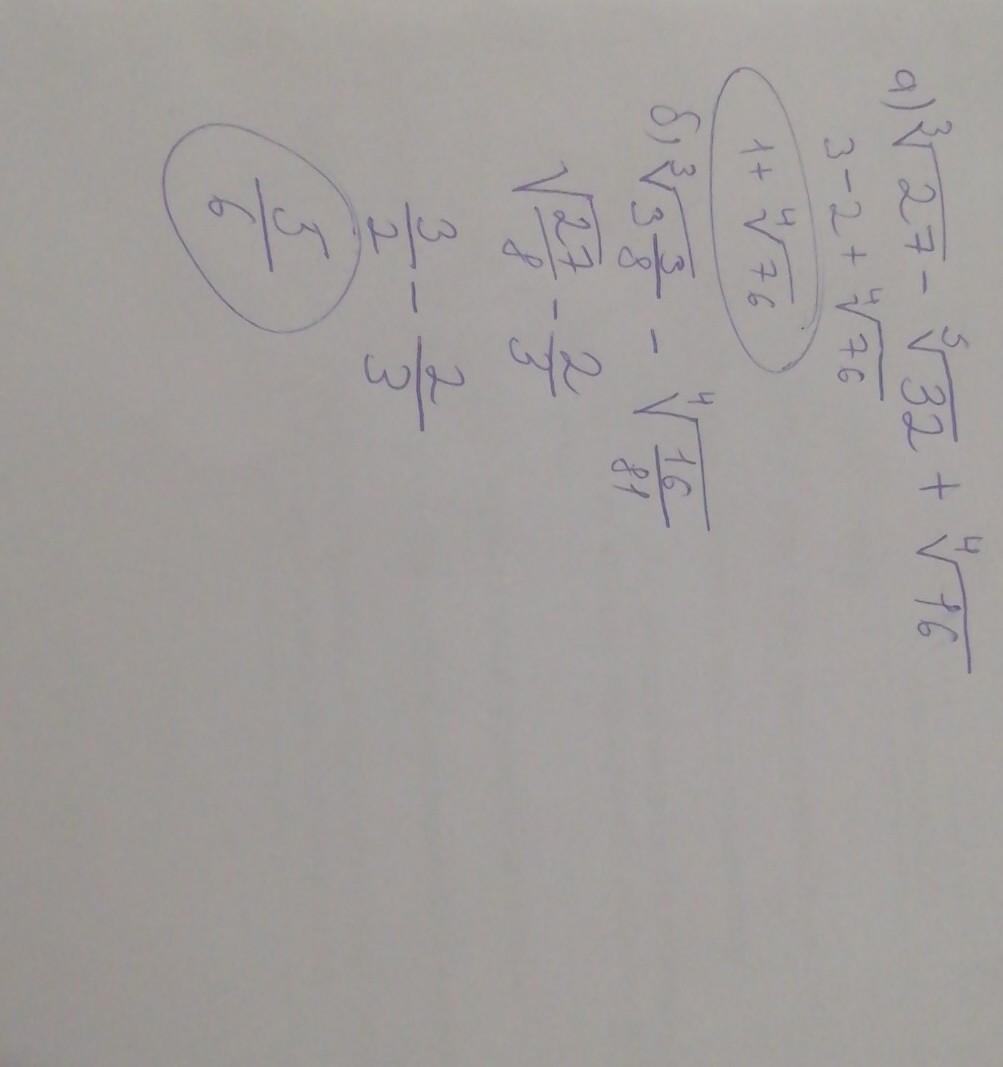 а) ³√27 - ⁵√32 + ⁴√76
3 - 2 + ⁴√76
1 + ⁴√76
б) ³√3 3/8 - ⁴√16/81
√27/8 - 2/3
3/2 - 2/3
5/6